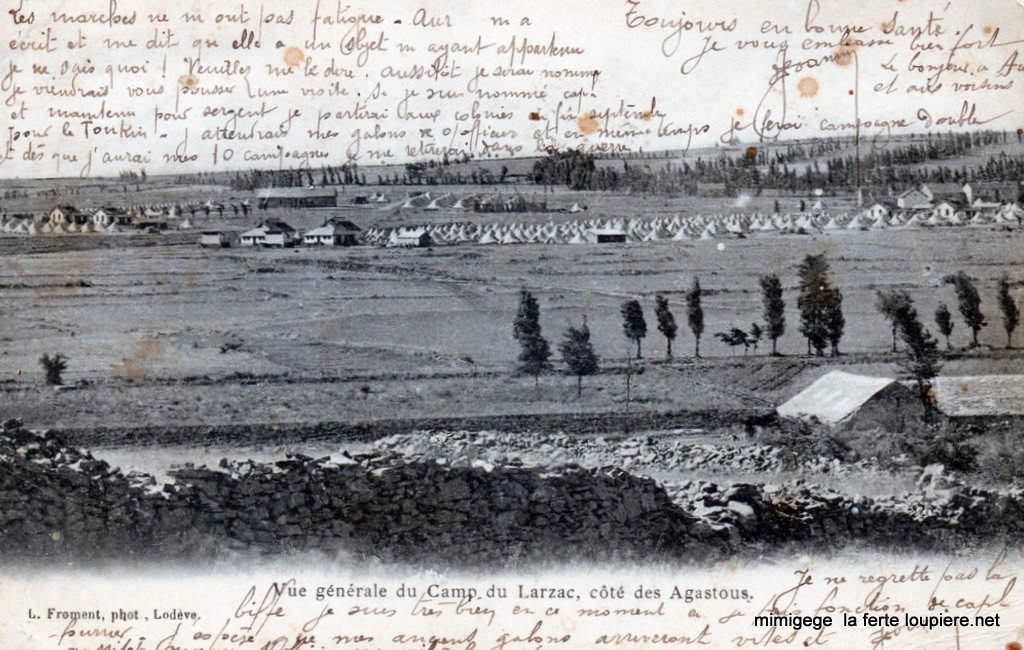 Les marches ne m ont pas fatigué - Aur m a
écrit et me dit qu elle a un objet m ayant appartenu
je ne sais quoi ! Veuillez me le dire. aussitôt je serai nommé
je viendrai vous pousser une visite. Si je suis nommé cap.
et maintenu pour sergent je partirai aux colonies en septembre
pour le Tonkin - J attendrais mes galons d officier et en même temps je ferai campagne double
et dès que j'aurai mes 10 campagnes je me retirerai dans la guerre.
Toujours en bonne santé.
Je vous embrasse bien fort
Le bonjour a
et aux voisins
Vue générale du Camp du Larzac, côté des Agastous.
L. Froment, phot., Lodève.
Je ne regrette pas la
biffe je suis très bien en ce moment je fais fonction de capl
fourrier. J espère que mes argent galons arriveront vites et
mimigege la ferte loupiere.net